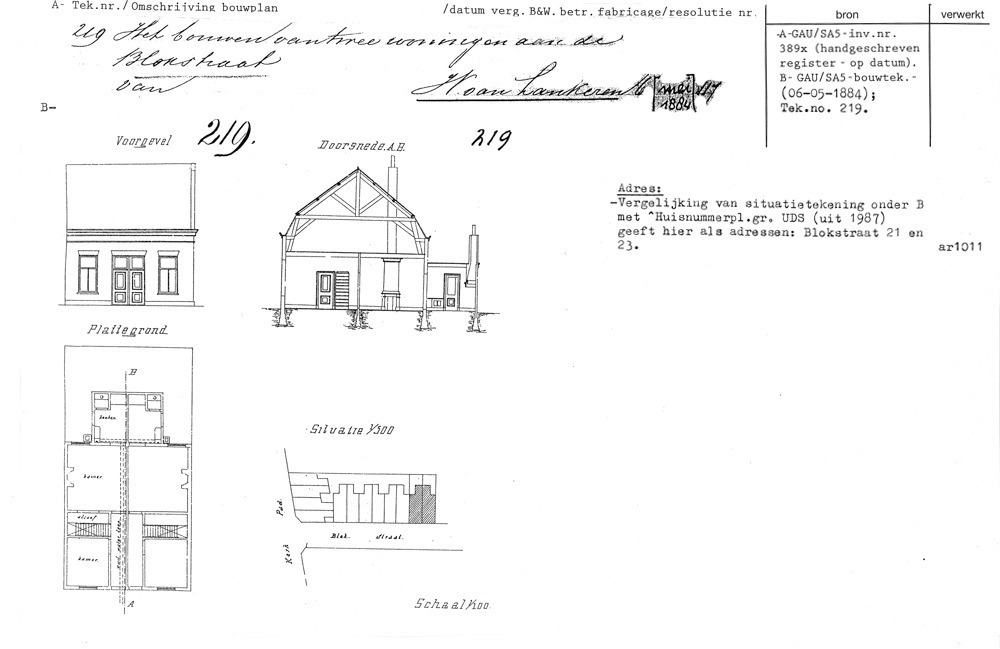 A- Tek.nr./Omschrijving bouwplan
/datum verg. B&W. betr. fabricage/resolutie nr.
bron
verwerkt
219 Het bouwen van twee woningen aan de
Blokstraat
van
H. van Lankeren 16 [mei 1884] 117
-A-GAU/SA5-inv.nr.
389x (handgeschreven
register - op datum).
B- GAU/SA5-bouwtek.-
(06-05-1884);
Tek.no. 219.
B-
Voorgevel
219.
Doorsnede A.B.
219
Adres:
-Vergelijking van situatietekening onder B
met ^Huisnummerpl.gr. UDS (uit 1987)
geeft hier als adressen: Blokstraat 21 en
23.
ar1011
Plattegrond
B
keuken
kamer
alcoof
kamer
A
Situatie 1/500
Pad
Blok straat.
Kerk
Schaal 1/100